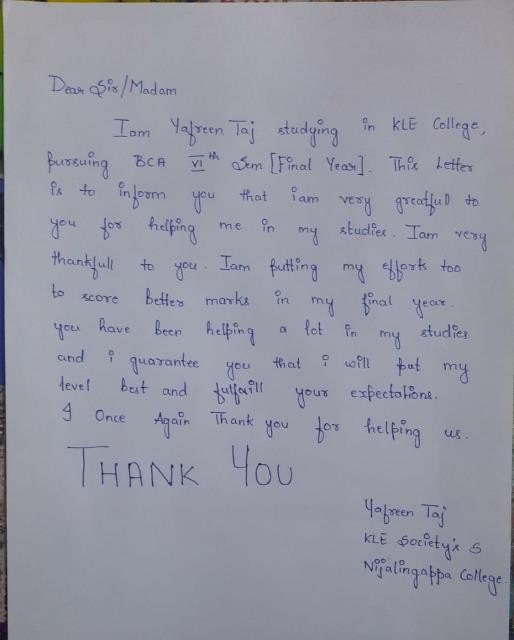 Dear Sir/Madam
Iam Yafreen Taj studying in KLE College,
pursuing BCA VIth Sem [Final Year]. This Letter
is to inform you that iam very greatfull to
you for helping me in my studies. Iam very
thankfull to you. Iam putting my efforts too
to score better marks in my final year.
you have been helping a lot in my studies
and i guarantee you that i will put my
level best and fulfaill your expectations.
I Once Again Thank you for helping us.
THANK YOU
Yafreen Taj
KLE Society's S
Nijalingappa College